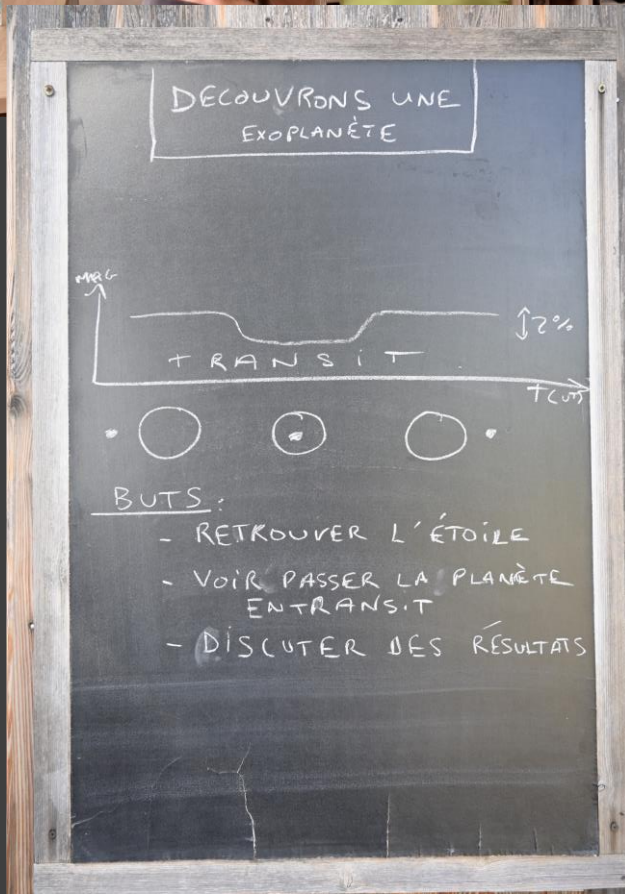 DECOUVRONS UNE
EXOPLANÈTE
MAG
2%
TRANSIT
T(UT)
BUTS:
- RETROUVER L'ÉTOILE
- VOIR PASSER LA PLANÈTE
EN TRANSIT
- DISCUTER DES RÉSULTATS